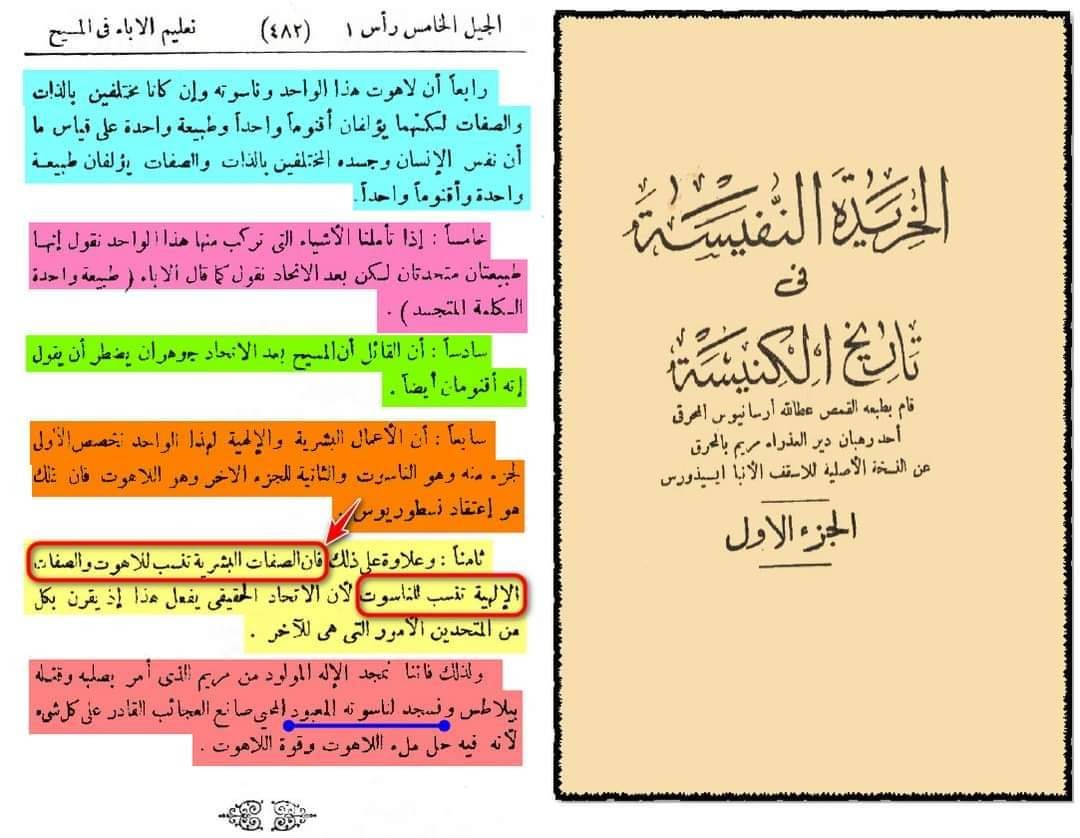 الجيل الخامس رأس ١ (٤٨٢) تعليم الاباء فى المسيح
رابعاً أن لاهوت هذا الواحد وناسوته وإن كانا مختلفين بالذات
والصفات لكنهما يؤلفان أقنوماً واحداً وطبيعة واحدة على قياس ما
أن نفس الإنسان وجسده المختلفين بالذات والصفات يؤلفان طبيعة
واحدة وأقنوماً واحداً.
خامساً : إذا تأملنا الأشياء التى تركب منها هذا الواحد نقول إنها
طبيعتان متحدتان لكن بعد الاتحاد نقول كما قال الاباء ( طبيعة واحدة
للكلمة المتجسد ) .
سادساً : أن القائل أن المسيح بعد الاتحاد جوهران يضطر أن يقول
إنه أقنومان أيضاً .
سابعاً : أن الأعمال البشرية والإلهية لهذا الواحد تخصص الأول
لجزء منه وهو الناسوت والثانية للجزء الاخر وهو اللاهوت فان ذلك
هو إعتقاد نسطوريوس .
ثامناً : وعلاوة على ذلك فان الصفات البشرية تنسب للاهوت والصفات
الإلهية تنسب للناسوت لأن الاتحاد الحقيقى يفعل هذا إذ يقرن بكل
من المتحدين الأمور التى هى للآخر .
ولذلك فاننا نمجد الإله المولود من مريم الذى أمر بصلبه وقتله
بيلاطس ونسجد لناسوته المعبود المحيى صانع العجائب القادر على كل شىء
لأنه فيه حل ملء اللاهوت وقوة اللاهوت .
الخريدة النفيسة
فى
تاريخ الكنيسة
قام بطبعه القمص عطالله أرسانيوس المحرقى
أحد رهبان دير العذراء مريم بالمحرق
عن النسخة الأصلية للاسقف الأنبا ايسيذورس
الجزء الاول